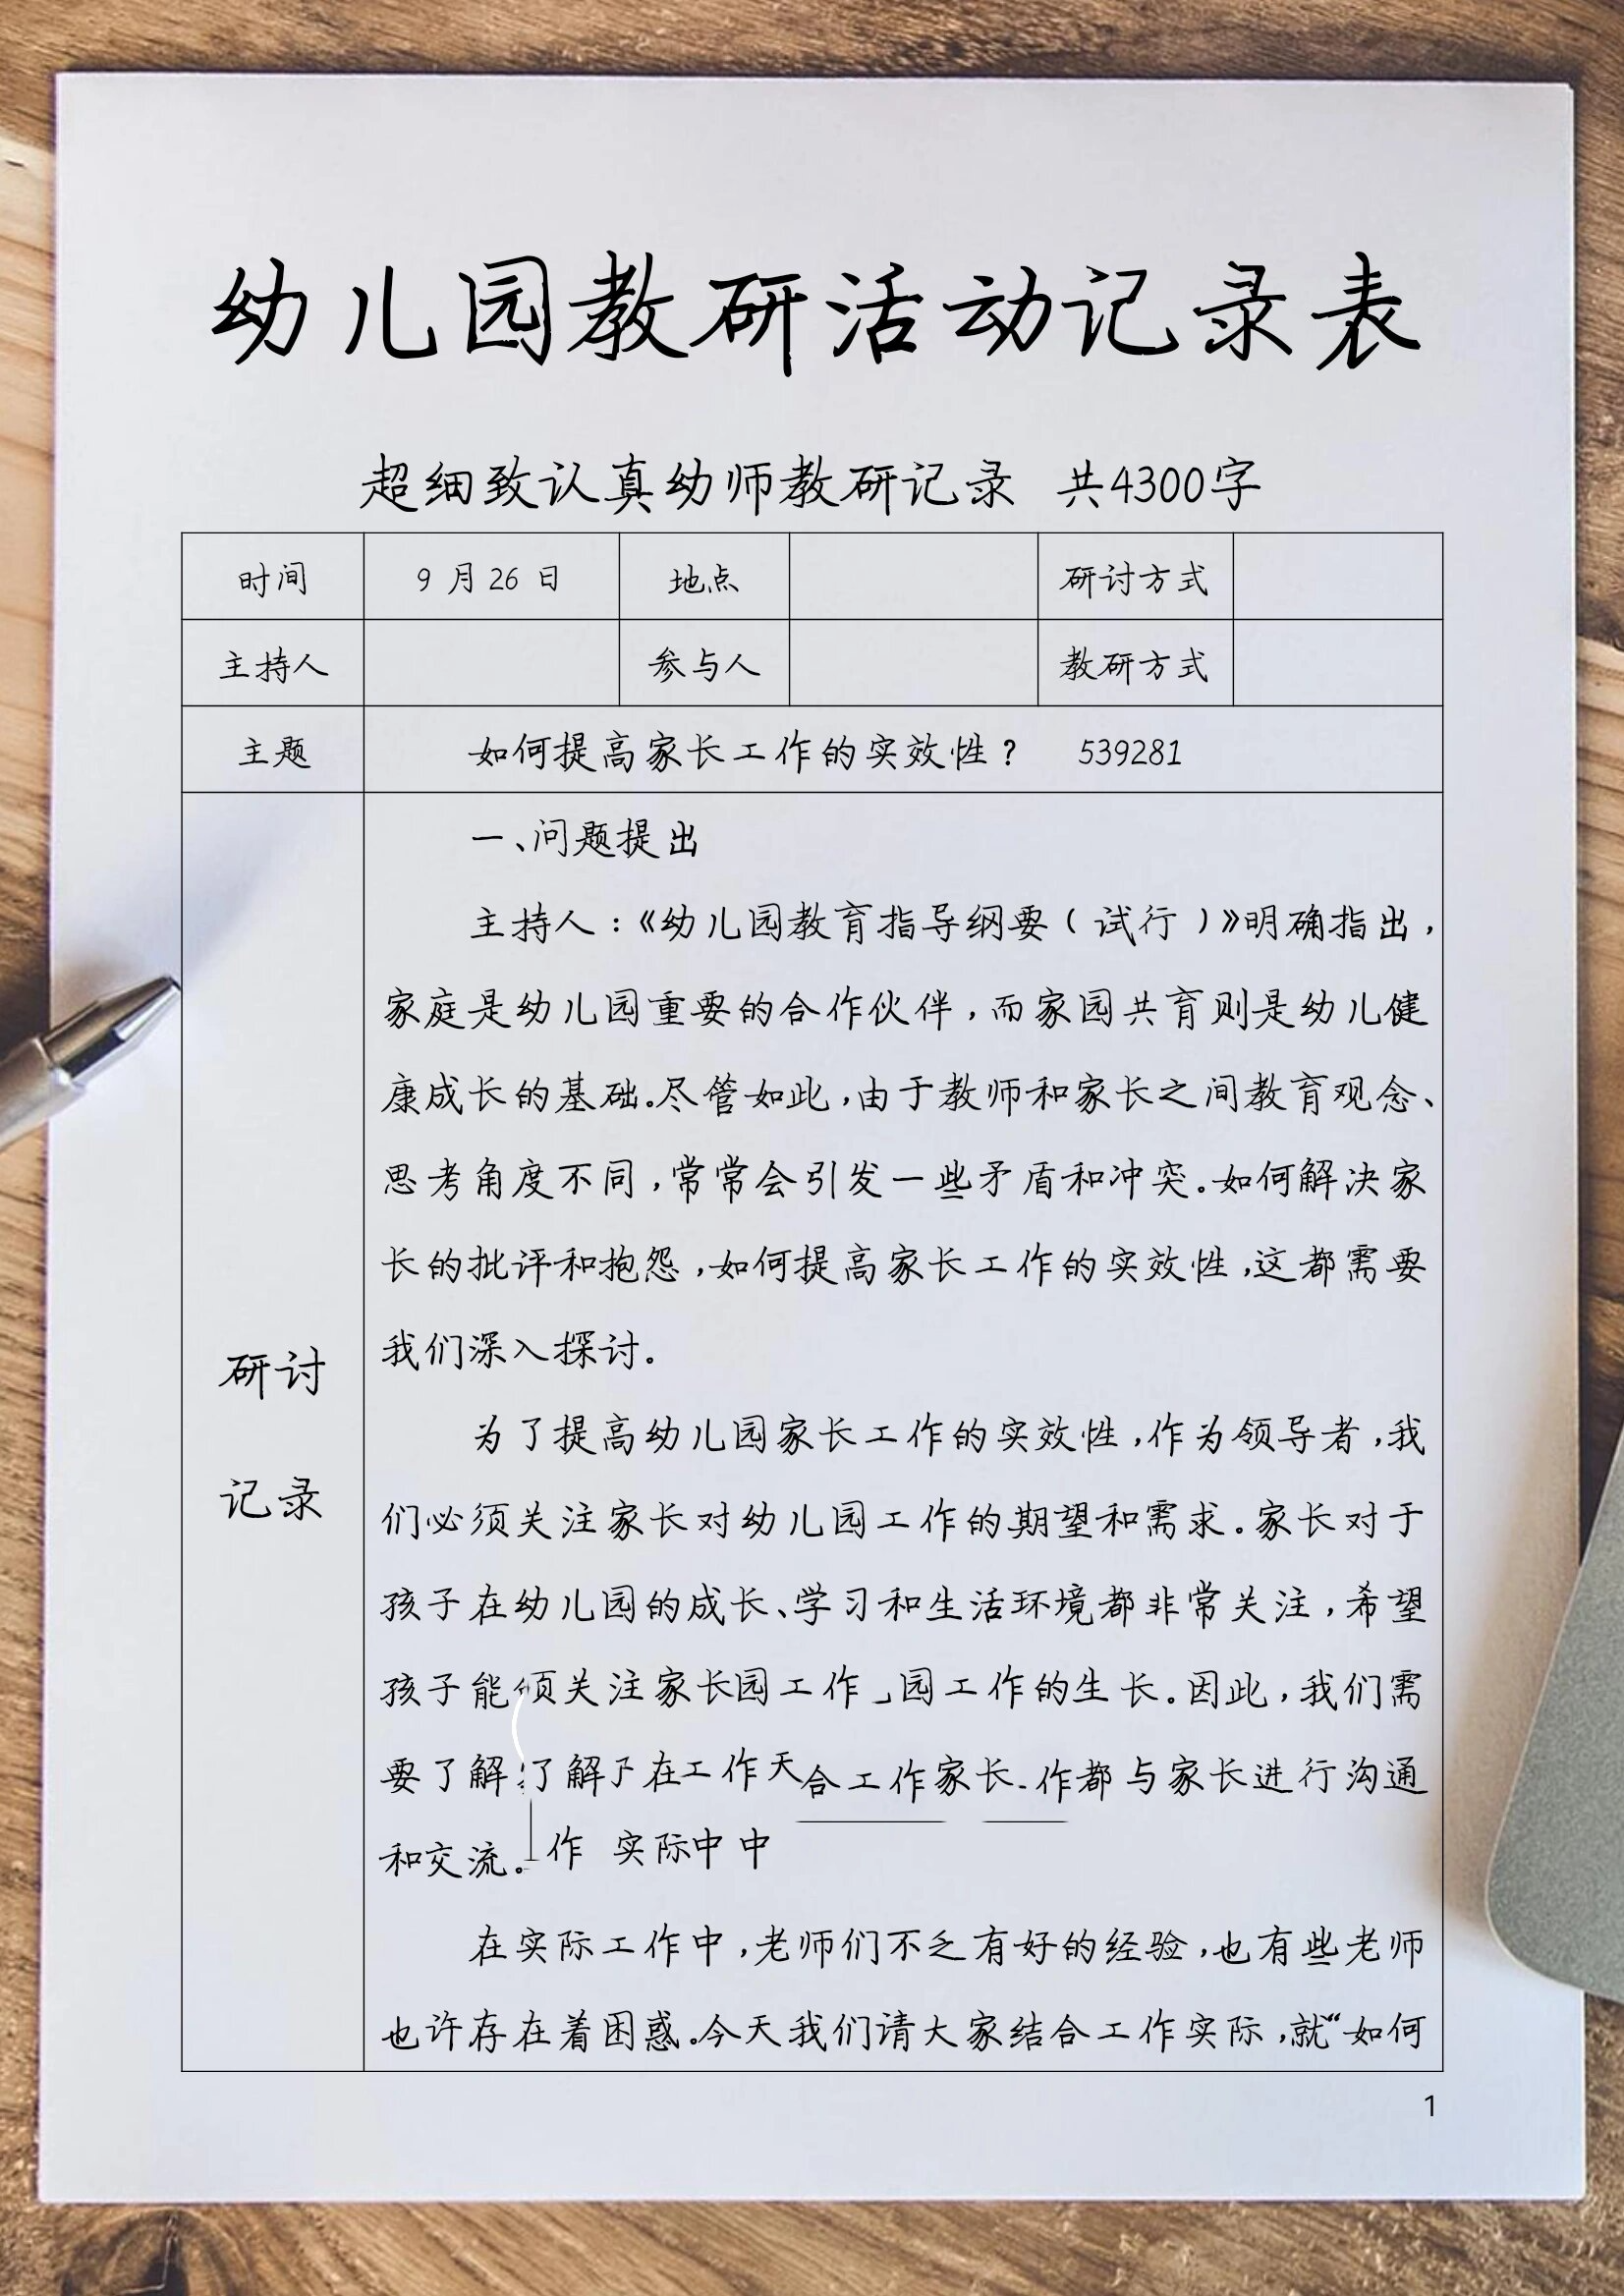 幼儿园教研活动记录表
超细致认真幼师教研记录 共4300字
时间 9月26日 地点 研讨方式
主持人 参与人 教研方式
主题 如何提高家长工作的实效性？ 539281
研讨
记录
一、问题提出
主持人：《幼儿园教育指导纲要（试行）》明确指出，
家庭是幼儿园重要的合作伙伴，而家园共育则是幼儿健
康成长的基础。尽管如此，由于教师和家长之间教育观念、
思考角度不同，常常会引发一些矛盾和冲突。如何解决家
长的批评和抱怨，如何提高家长工作的实效性，这都需要
我们深入探讨。
为了提高幼儿园家长工作的实效性，作为领导者，我
们必须关注家长对幼儿园工作的期望和需求。家长对于
孩子在幼儿园的成长、学习和生活环境都非常关注，希望
孩子能 关注家长园工作 园工作的生长。因此，我们需
要了解 了解 在工作天合工作家长 作都与家长进行沟通
和交流。作 实际中中
在实际工作中，老师们不乏有好的经验，也有些老师
也许存在着困惑。今天我们请大家结合工作实际，就“如何
1